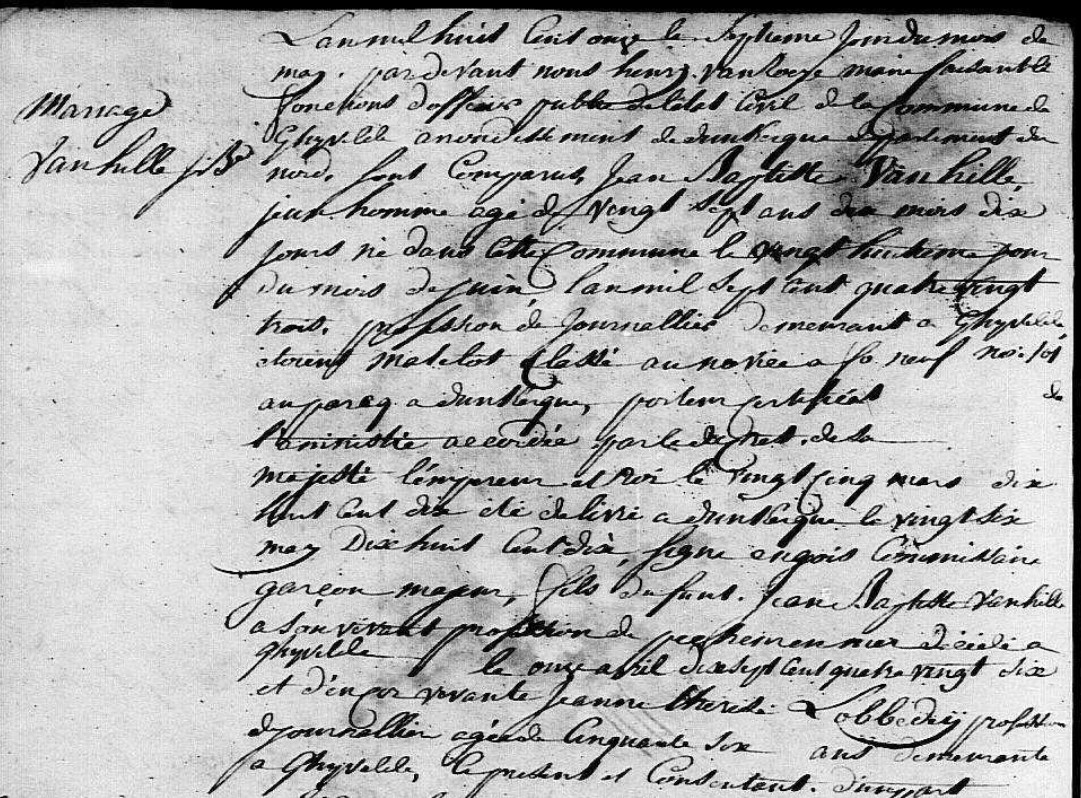 Mariage
Vanhille J Bte
L'an mil huit Cent onze le Septieme Jour du mois de
may. par devant nous henry. vanLoeye maire faisant le
fonctions d'officier public de l'état Civil de la Commune de
Ghyvelde arrondissement de dunkerque departement du
nord. sont Comparus, Jean Baptiste Vanhille,
jeun homme agé de vingt sept ans dix mois dix
jours né dans Cette Commune le vingt huitieme jour
du mois de juin l'an mil Sept Cent quatre vingt
trois. profession de Journallier demeurant a Ghyvelde
matelot Classé au novice a fo neuf no.
au parcq a dunkerque, porteur certificat de
l'amnistie accordée par le decret. de sa
majesté l'empereur et Roi le vingt Cinq mars dix
huit Cent dix été délivré a dunkerque le vingt six
may Dix huit Cent dix signé Commissaire
garçon majeur, fils du funt. Jean Baptiste Vanhille
a son vivant profession de pecheur en mer décédé a
ghyvelde le onze avril dix sept Cent quatre vingt six
et d'encor vivante Jeanne therese Lobbedeÿ profession
de journallier agée de Cinquante six ans demeurante
a Ghyvelde, Ce present et Consentant. d'une part